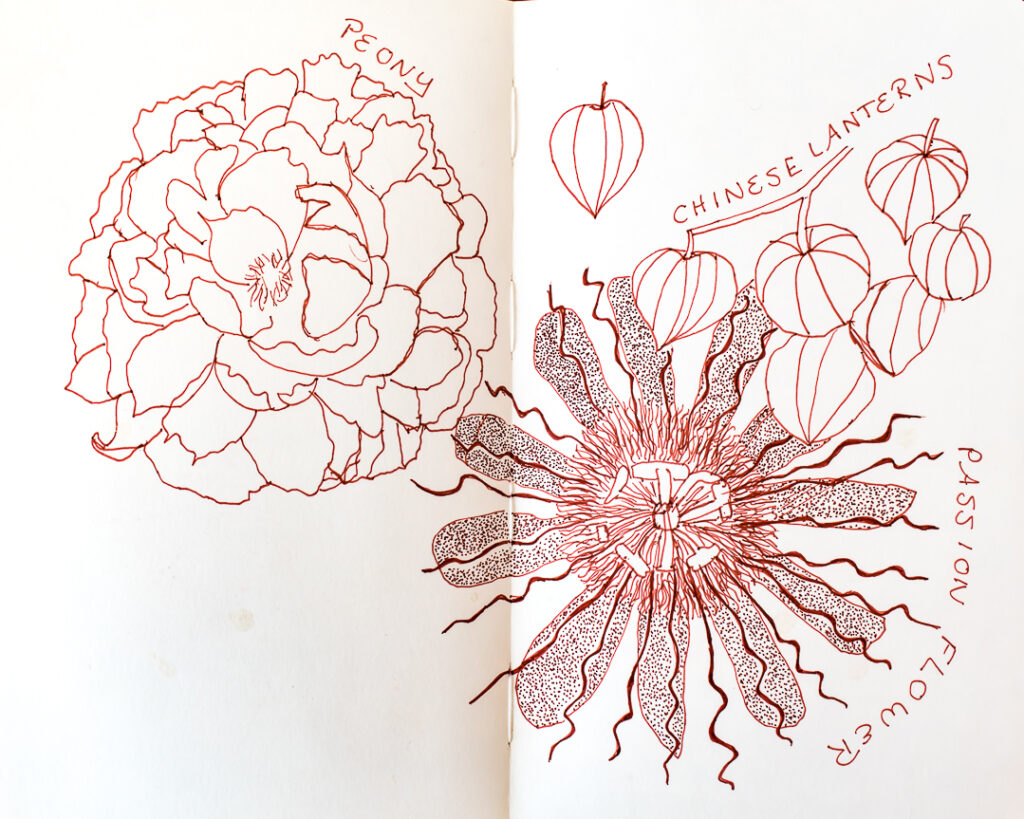 PEONY
CHINESE LANTERNS
PASSION FLOWER